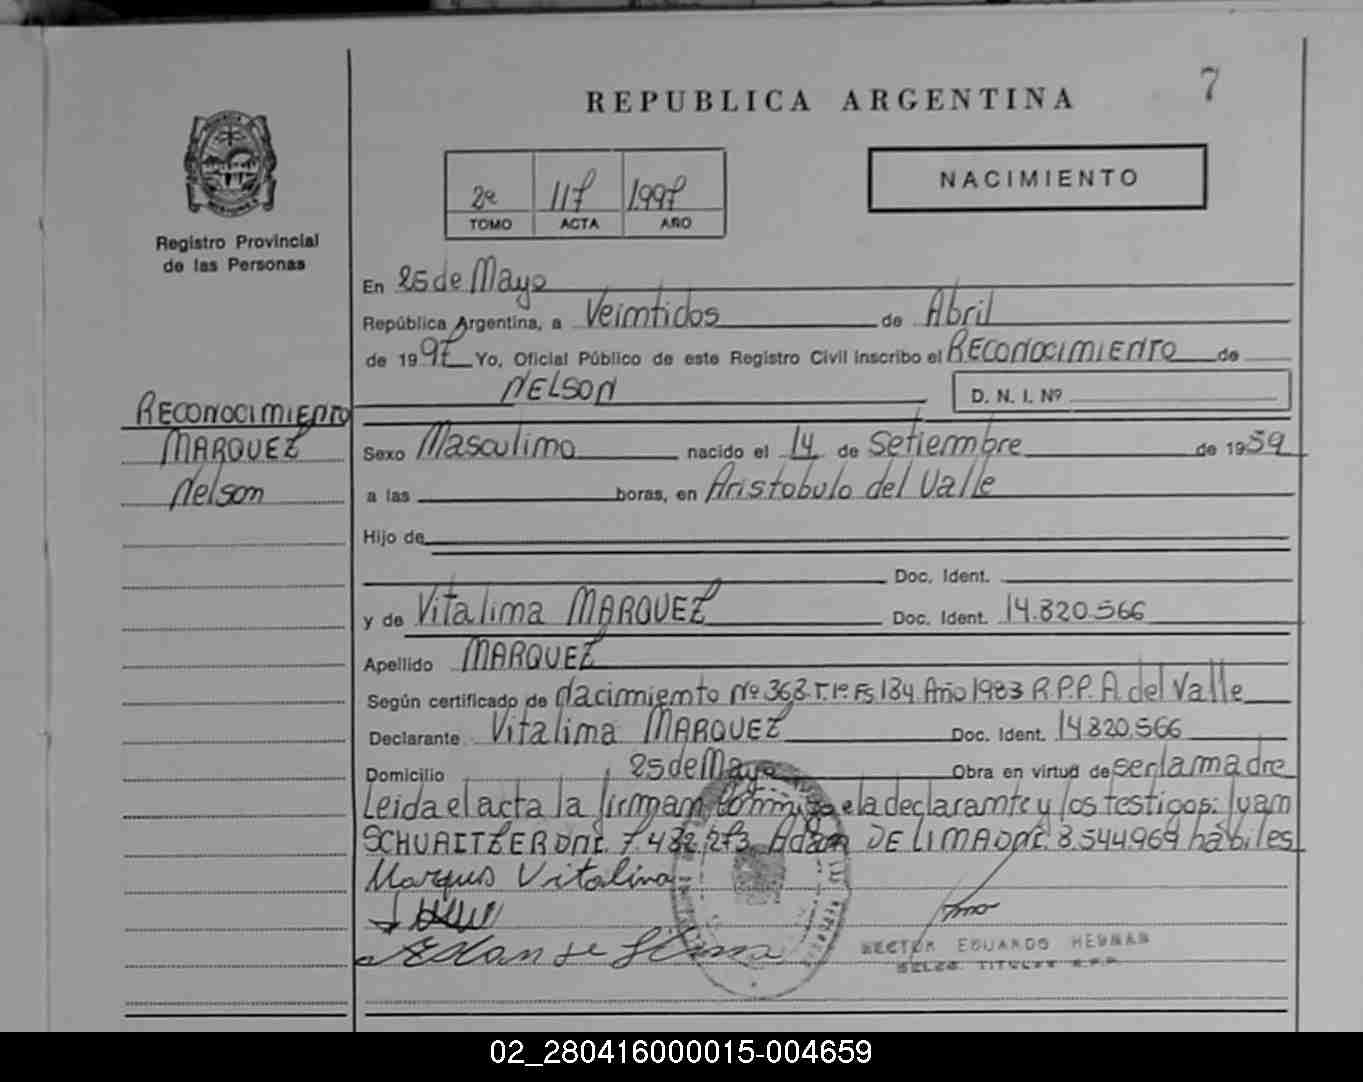 7
REPUBLICA ARGENTINA
2º 117 1997
TOMO ACTA AÑO
NACIMIENTO
Registro Provincial
de las Personas
En 25 de Mayo
República Argentina, a Veintidos de Abril
de 1997 Yo, Oficial Público de este Registro Civil inscribo el RECONOCIMIENTO de
NELSON D. N. I. Nº
RECONOCIMIENTO
MARQUEZ
Nelson
Sexo Masculino nacido el 14 de Setiembre de 1959
a las horas, en Aristobulo del Valle
Hijo de
Doc. Ident.
y de Vitalina MARQUEZ Doc. Ident. 14.820.566
Apellido MARQUEZ
Según certificado de Nacimiento Nº 363.T.1º.Fs.184.Año 1983 R.P.P. A. del Valle
Declarante Vitalina MARQUEZ Doc. Ident. 14.820.566
Domicilio 25 de Mayo Obra en virtud de ser la madre
Leida el acta la firman conmigo la declarante y los testigos: Juan
SCHUAITZER DNI. 7.482.273 Adan DE LIMA DNI. 8.544.969 habiles
Marques Vitalina
HECTOR EDUARDO HERMAN
DELEG. TITULAR R.P.P.
02_280416000015-004659